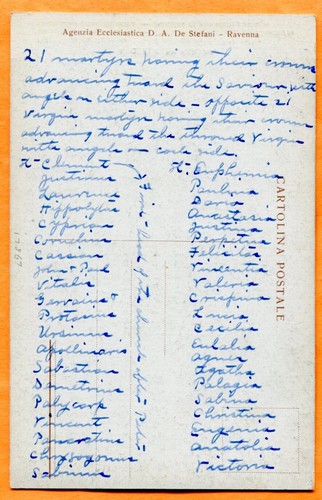 Agenzia Ecclesiastica D. A. De Stefani - Ravenna
21 martyrs having their crowns
advancing toward the Saviour with
angels on either side - opposite 21
Virgin martyrs having their crowns
advancing toward the throned Virgin
with angels on each side.
St. Clement
Justinus
Laurence
Hippolytus
Cyprian
Cornelius
Cassian
John & Paul
Vitalis
Gervasius &
Protasius
Ursinus
Apollinaris
Sabastian
Demetrius
Polycarp
Vincent
Pancratius
Chrysogonus
Sabinus
head of the church after Peter
St. Euphemia
Paulina
Daria
Anastasia
Justina
Perpetua
Felicitas
Vincentia
Valeria
Crispina
Lucia
Cecilia
Eulalia
Agnes
Agatha
Pelagia
Sabina
Christina
Eugenia
Anatolia
Victoria
CARTOLINA POSTALE